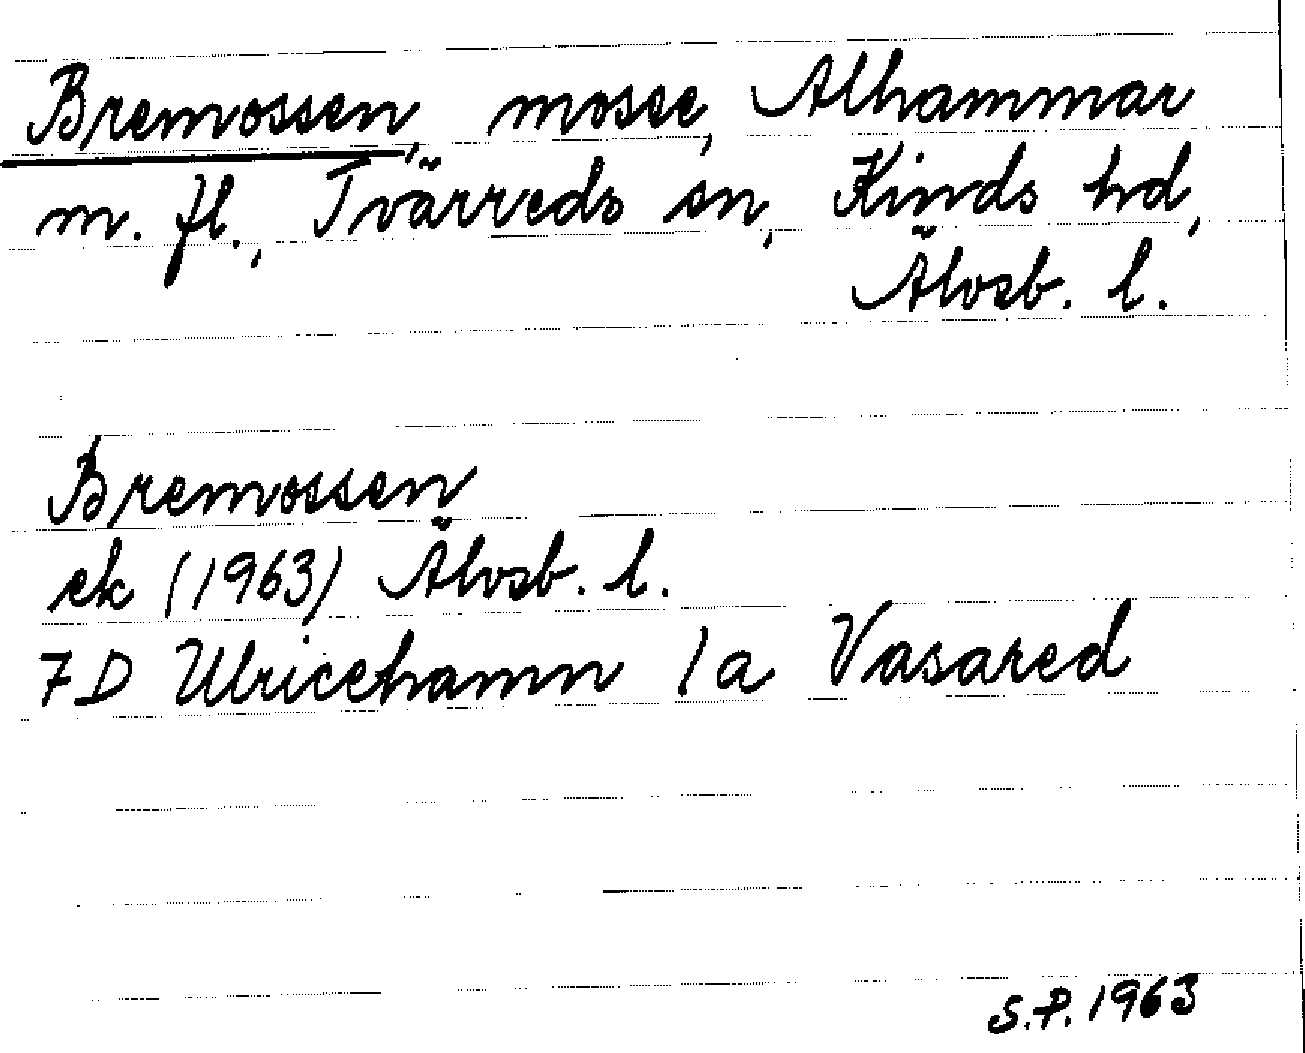 Bremossen, mosse, Alhammar
m. fl., Tvärreds sn, Kinds hd,
Älvsb. l.
Bremossen
ek (1963) Älvsb. l.
7D Ulricehamn 1a Vasared
S.P. 1963